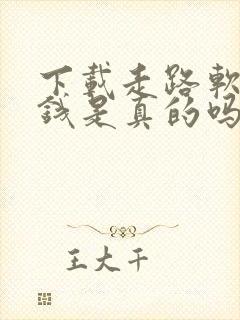 下載走路軟
錢是真的吗
王大千